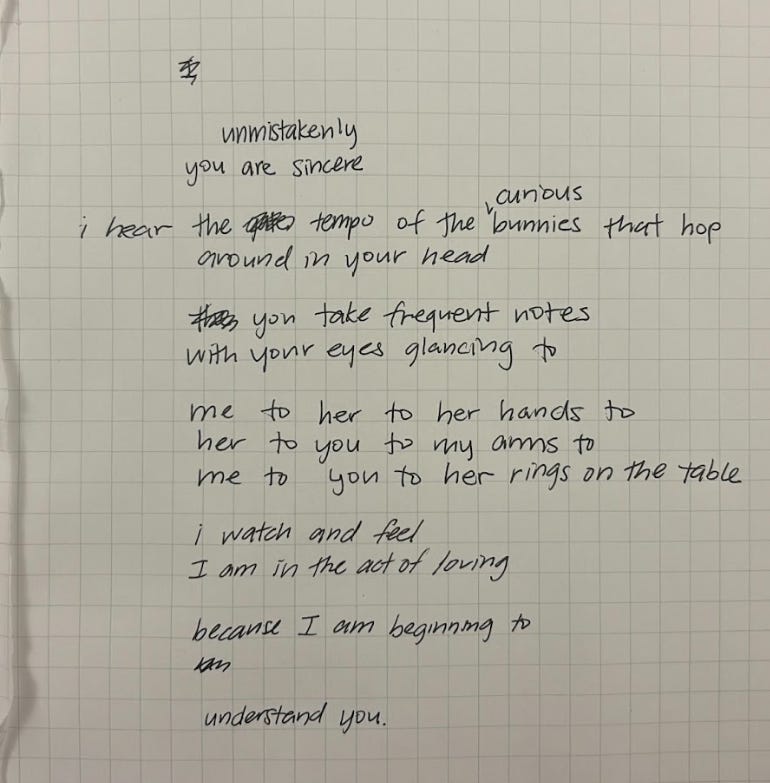 unmistakenly
you are sincere
i hear the tempo of the curious bunnies that hop
around in your head
you take frequent notes
with your eyes glancing to
me to her to her hands to
her to you to my arms to
me to you to her rings on the table
i watch and feel
I am in the act of loving
because I am beginning to
understand you.